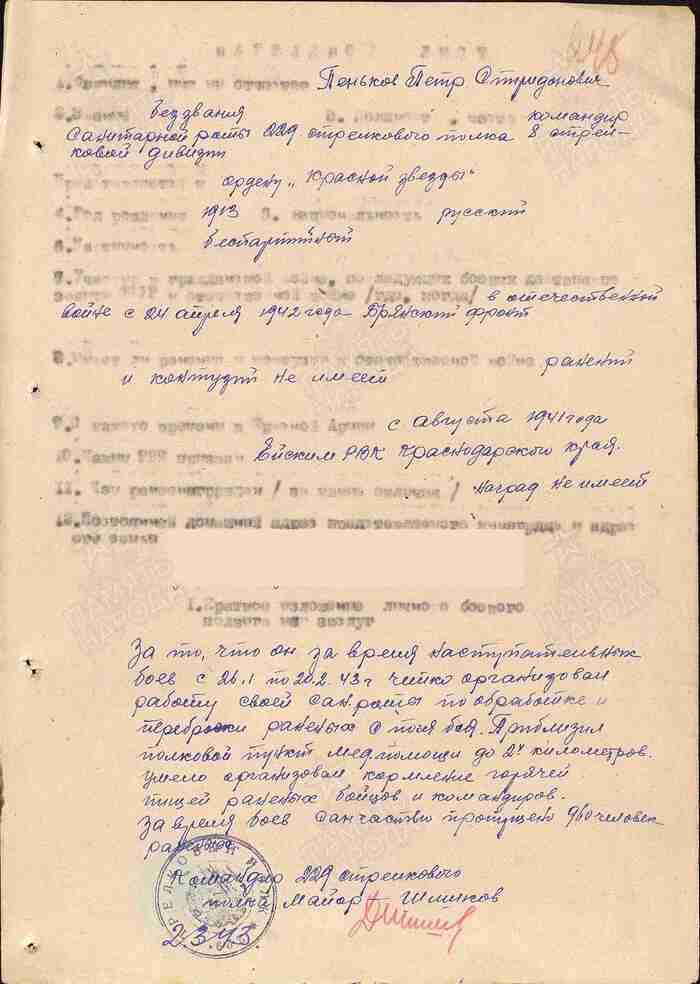 248
НАГРАДНОЙ ЛИСТ
1. Фамилия, имя и отчество Пеньков Петр Спиридонович
2. Звание без звания 3. Должность, часть командир
Санитарной роты 229 стрелкового полка 8 стрел-
ковой дивизии
Представляется к ордену „Красной звезды"
4. Год рождения 1913 5. национальность русский
6. Партийность беспартийный
7. Участие в гражданской войне, последующих боевых действиях
защите СССР и отечественной войне /где, когда/ в отечественной
войне с 24 апреля 1942 года Брянский фронт
8. Имеет ли ранения и контузии в отечественной войне ранений
и контузий не имеет
9. С какого времени в Красной Армии с Августа 1941 года
10. Каким РВК призван Ейским РВК Краснодарского края.
11. Чем ранее награжден / за какие отличия / наград не имеет
12. Постоянный домашний адрес представляемого к награде и адрес
его семьи
I. Краткое изложение личного боевого
подвига или заслуг
За то, что он за время наступательных
боев с 26.1 по 20.2.43 г чётко организовал
работу своей сан.роты по обработке и
переброски раненых с поля боя. Приблизил
полковой пункт мед.помощи до 2х километров.
умело организовал кормление горячей
пищей раненых бойцов и командиров.
За время боев санчастью пропущено 960 человек
раненых.
Командир 229 стрелкового
полка Майор Шликов
2.3.43.